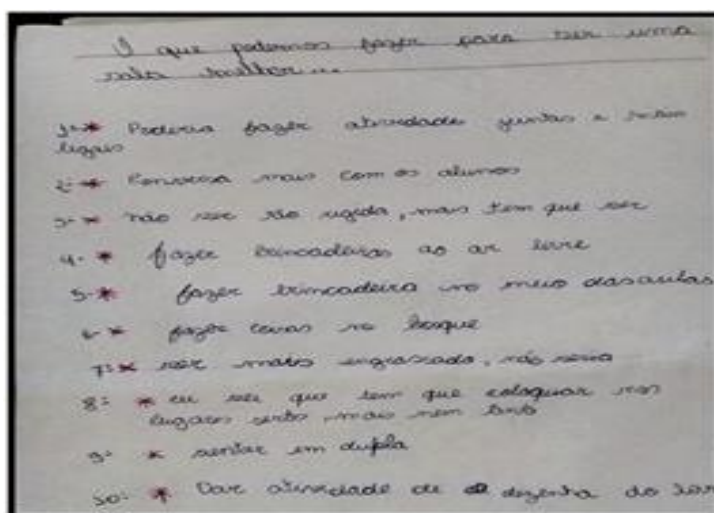 O que podemos fazer para ser uma
sala melhor...
1º * Poderia fazer atividade juntas e
legais
2º * Conversa mais com os alunos
3º * não ser tão rigida, mais tem que ser
4º * fazer brincadeiras ao ar livre
5º * fazer brincadeira no meio das aulas
6º * fazer no bosque
7º * ser mais engraçado, não
8º * eu sei que tem que coloquar nos
lugares serto, mais nem tanto
9º * sentar em dupla
10º * Dar atividade de dezenha do